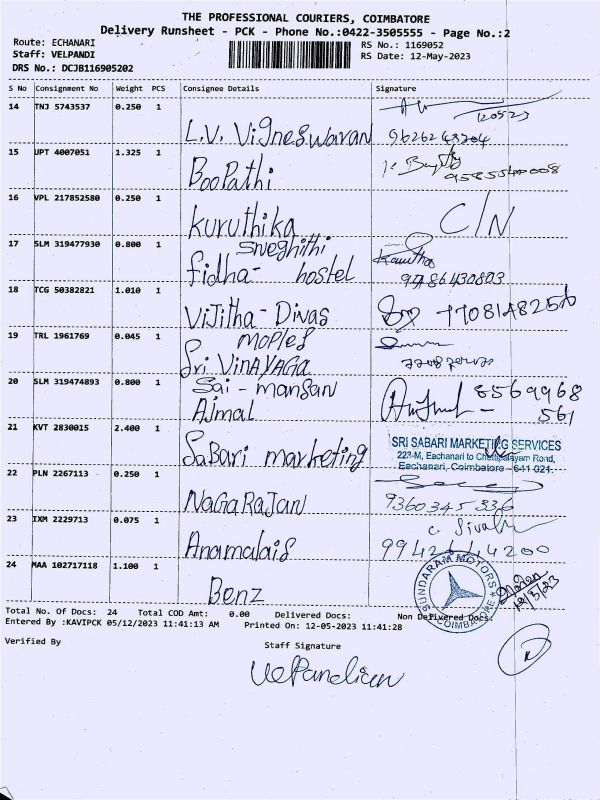 THE PROFESSIONAL COURIERS, COIMBATORE
Delivery Runsheet - PCK - Phone No.:0422-3505555 - Page No.:2
Route: ECHANARI
RS No.: 1169052
Staff: VELPANDI
RS Date: 12-May-2023
DRS No.: DCJB116905202
S No Consignment No Weight PCS Consignee Details Signature
14 TNJ 5743537 0.250 1
120523
L.V. Vigneswaran 9626243204
15 UPT 4007051 1.325 1
BooPathi
16 VPL 217852580 0.250 1
Kuruthika C/N
17 SLM 319477930 0.800 1 Sneghithi
fidha- hostel Kavitha 9786430803
18 TCG 50382821 1.010 1
Vijitha- Divas 7708148256
19 TRL 1961769 0.045 1 moples
Sri VINAYAGA
20 SLM 319474893 0.800 1 Sai - mansan
Ajmal 8569968
561
21 KVT 2830015 2.400 1
SRI SABARI MARKETING SERVICES
223-M, Eachanari to Chettipalayam Road,
Eachanari, Coimbatore - 641 021.
SaBari marketing
22 PLN 2267113 0.250 1
NAGARAJAN 9360345336
23 IXM 2229713 0.075 1
Anamalais 9942644200
24 MAA 102717118 1.100 1
Benz
SUNDARAM MOTORS
COIMBATORE
12/5/23
Total No. Of Docs: 24 Total COD Amt: 0.00 Delivered Docs: Non Delivered Docs:
Entered By :KAVIPCK 05/12/2023 11:41:13 AM Printed On: 12-05-2023 11:41:28
Verified By Staff Signature
VelPandian